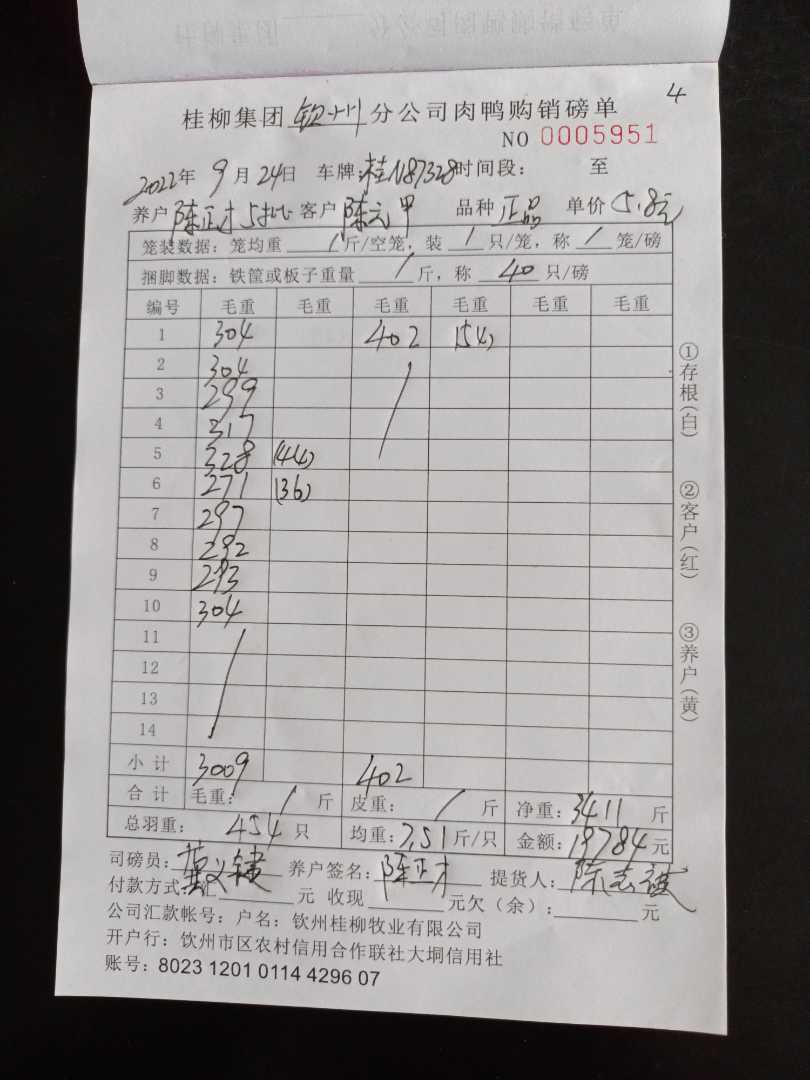 4
桂柳集团 钦州 分公司肉鸭购销磅单
NO 0005951
2022年 9月 24日 车牌:桂N87328 时间段: 至
养户 陈正才 5批 客户 陈元甲 品种 正品 单价 5.8元
笼装数据: 笼均重 / 斤/空笼, 装 / 只/笼, 称 / 笼/磅
捆脚数据: 铁筐或板子重量 / 斤, 称 40 只/磅
编号 毛重 毛重 毛重 毛重 毛重 毛重
1 304 402 (54)
2 304 /
3 299
4 317
5 328 (44)
6 271 (36)
7 297
8 292
9 293
10 304
11 /
12
13
14
小计 3009 402
合计 毛重: / 斤 皮重: / 斤 净重: 3411 斤
总羽重: 454 只 均重: 7.51 斤/只 金额: 19784 元
司磅员: 养户签名: 陈正才 提货人: 陈志诚
付款方式: 汇 元 收现 元欠(余): 元
公司汇款帐号: 户名: 钦州桂柳牧业有限公司
开户行: 钦州市区农村信用合作联社大垌信用社
账号: 8023 1201 0114 4296 07
①存根(白) ②客户(红) ③养户(黄)